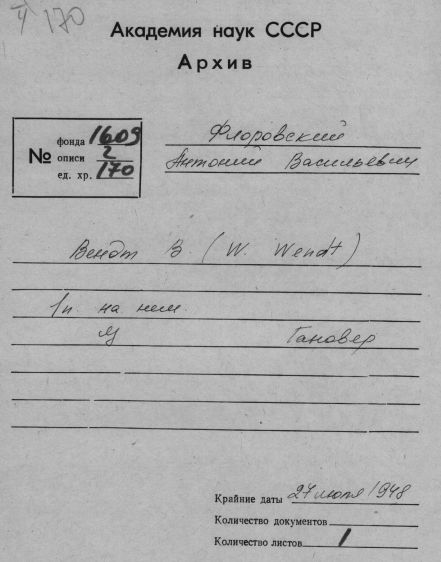 170
Академия наук СССР
Архив
№ фонда 1609
описи 2
ед. хр. 170
Флоровский
Антоний Васильевич
Вендт В. (W. Wendt)
1 п. на нем.
Гановер
Крайние даты 27 июля 1948
Количество документов
Количество листов 1